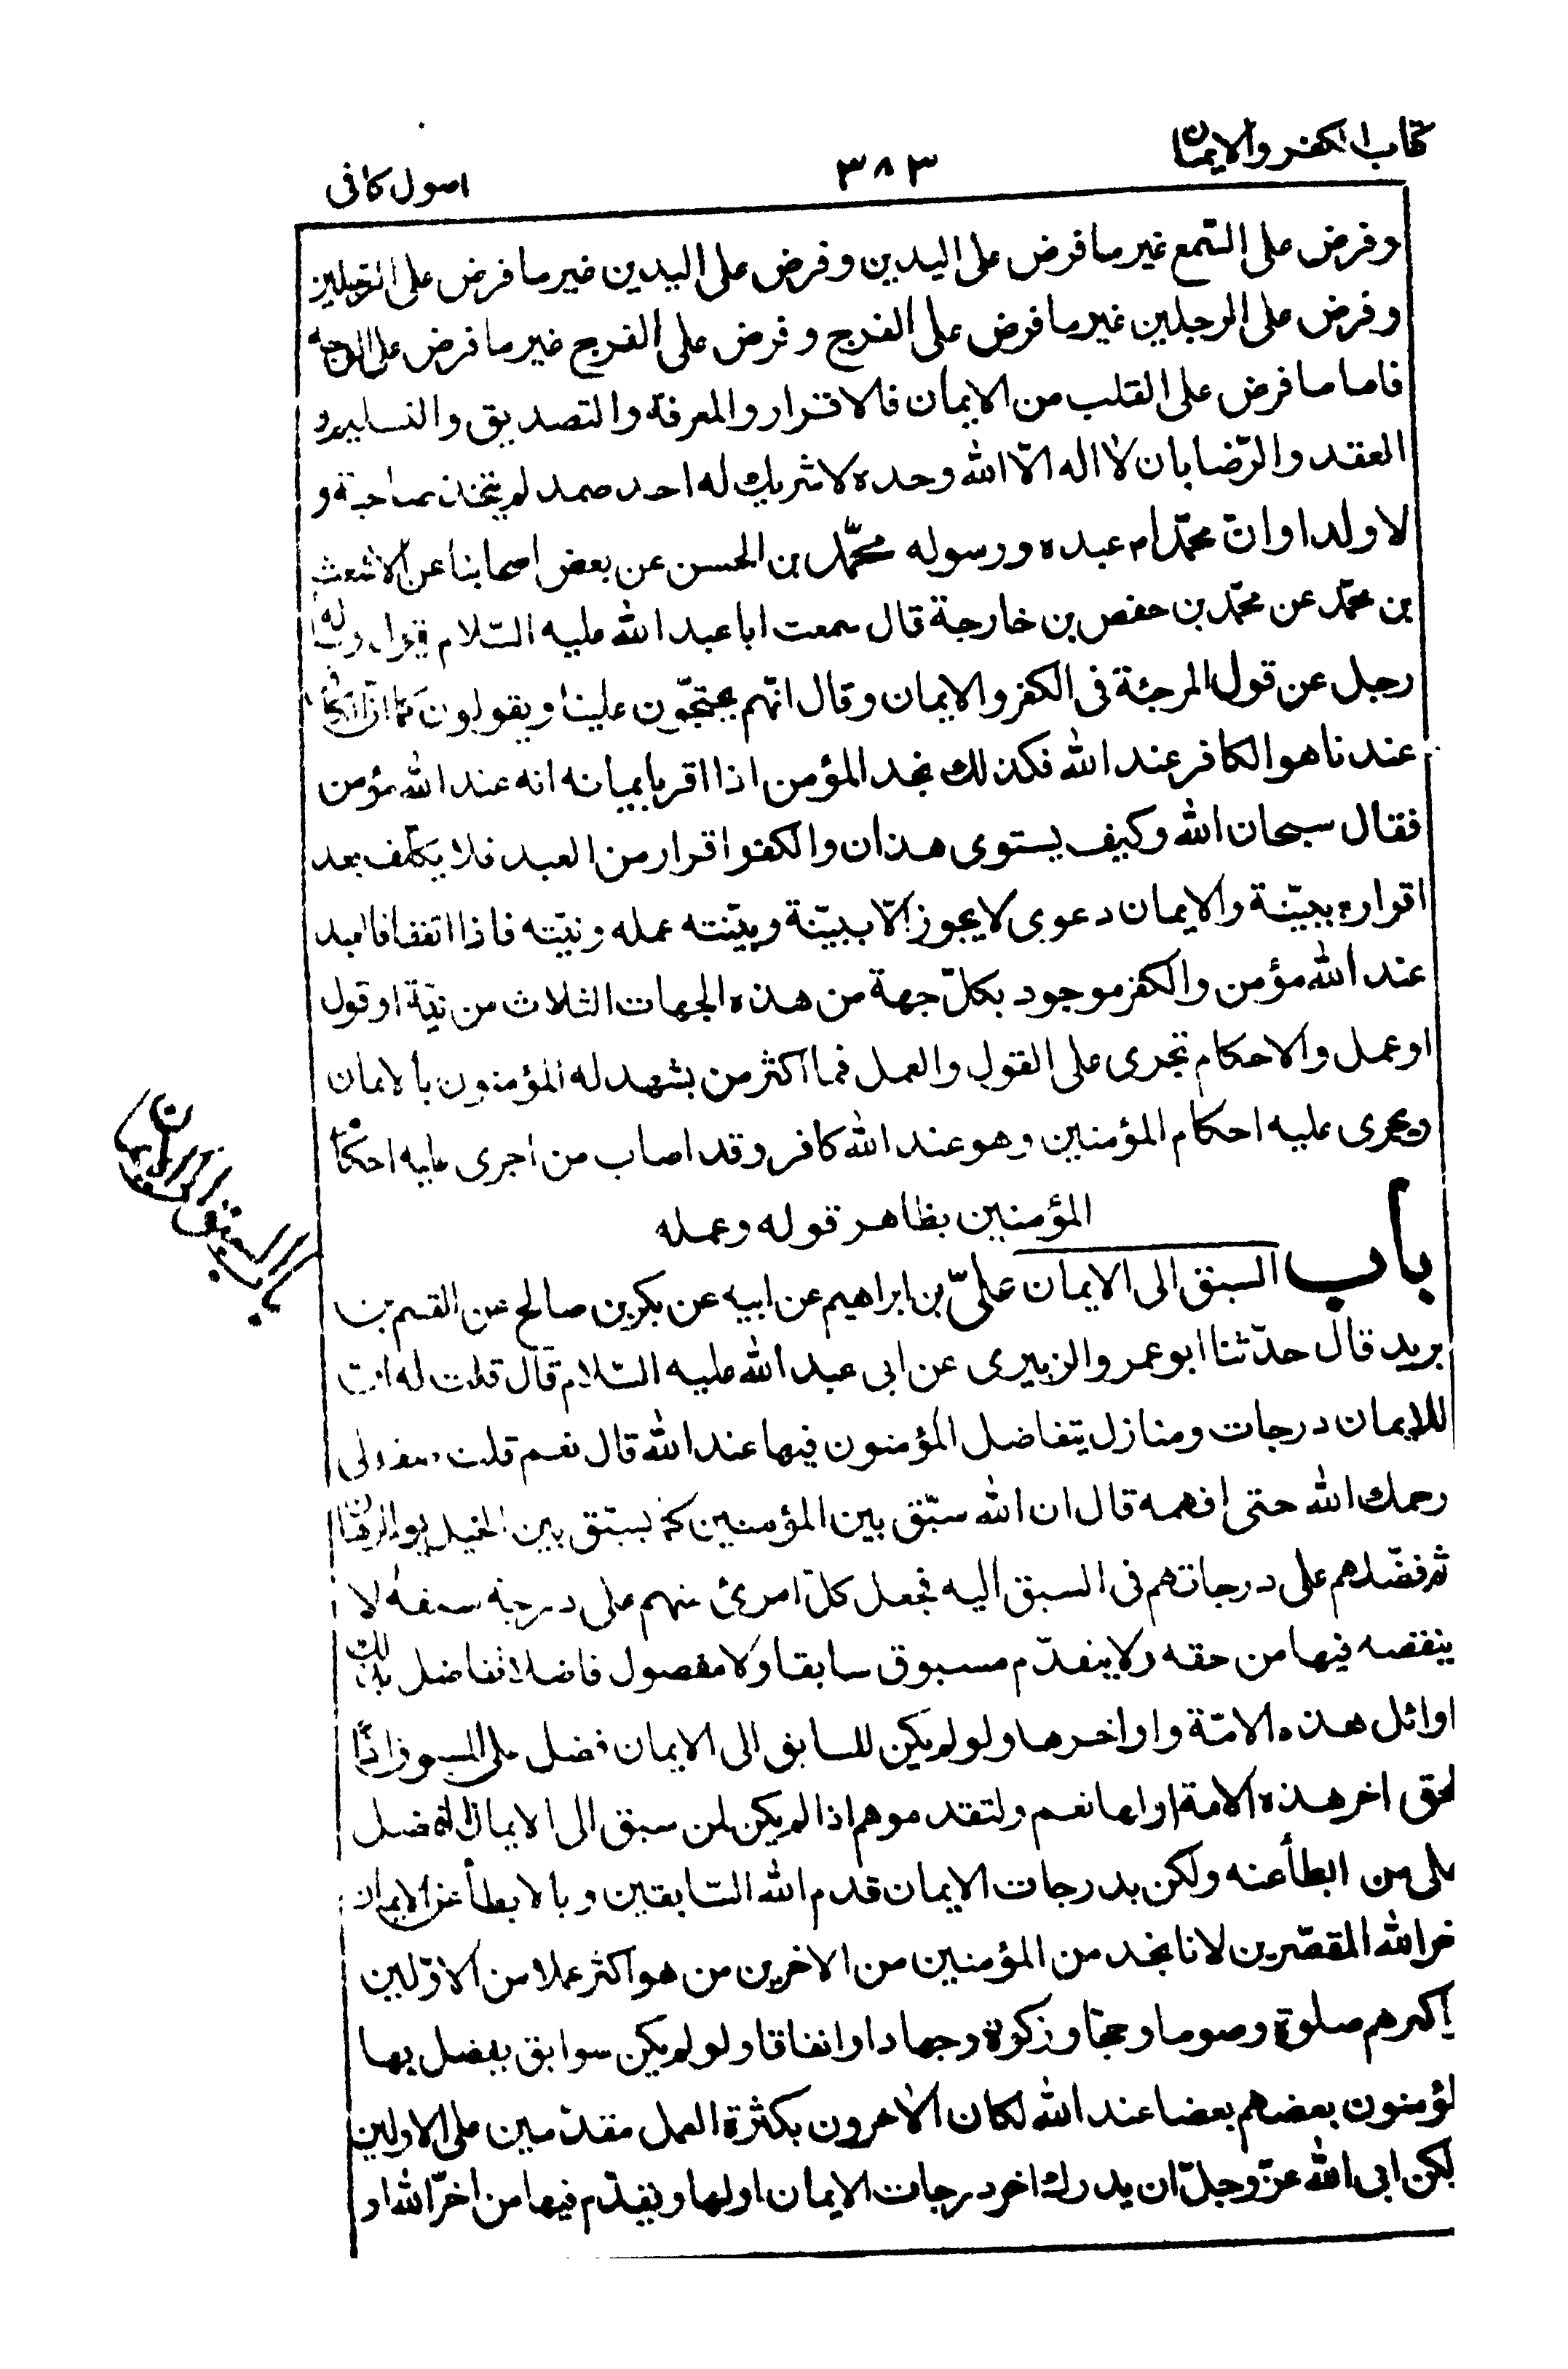 كتاب الكفر والايمان
٣٨٣
اصول كافى
وفرض على السّمع غير ما فرض على اليدين وفرض على اليدين غير ما فرض على الرّجلين
وفرض على الرجلين غير ما فرض على الفرج وفرض على الفرج غير ما فرض على الوجه
فاما ما فرض على القلب من الايمان فالاقرار والمعرفة والتصديق والتسليم و
العقد والرّضا بان لا اله الّا الله وحده لا شريك له احد صمد لم يتخذ صاحبة و
لا ولدا وانّ محمّدا م عبده ورسوله محمّد بن الحسن عن بعض اصحابنا عن الاشعث
بن محمّد عن محمّد بن حفص بن خارجة قال سمعت ابا عبد الله عليه السّلام يقول وساله
رجل عن قول المرجئة فى الكفر والايمان وقال انّهم يحتجّون علينا ويقولون كما انّ الكافر
عندنا هو الكافر عند الله فكذلك نجد المؤمن اذا اقر بايمانه انه عند الله مؤمن
فقال سبحان الله وكيف يستوى هذان والكفر اقرار من العبد فلا يكلّف بعد
اقراره ببيّنة والايمان دعوى لا يجوز الّا ببيّنة وبيّنته عمله ونيّته فاذا اتفقا فالعبد
عند الله مؤمن والكفر موجود بكلّ جهة من هذه الجهات الثلاث من نيّة او قول
او عمل والاحكام تجرى على القول والعمل فما اكثر من يشهد له المؤمنون بالايمان
ويجرى عليه احكام المؤمنين وهو عند الله كافر وقد اصاب من اجرى عليه احكام
المؤمنين بظاهر قوله وعمله
باب السبق الى الايمان علىّ بن ابراهيم عن ابيه عن بكر بن صالح عن القسم بن
بريد قال حدّثنا ابو عمرو الزبيرى عن ابى عبد الله عليه السّلام قال قلت له ان
للايمان درجات ومنازل يتفاضل المؤمنون فيها عند الله قال نعم قلت صفه لى
رحمك الله حتى افهمه قال ان الله سبّق بين المؤمنين كما يسبّق بين الخيل يوم الرهان
ثم فضّلهم على درجاتهم فى السبق اليه فجعل كلّ امرئ منهم على درجة سبقه لا
ينقصه فيها من حقه ولا يتقدّم مسبوق سابقا ولا مفضول فاضلا تفاضل بذلك
اوائل هذه الامّة واواخرها ولو لم يكن للسابق الى الايمان فضل على المسبوق اذًا
لحق اخر هذه الامة اولها نعم ولتقدموهم اذا لم يكن لمن سبق الى الايمان الفضل
على من ابطأ عنه ولكن بدرجات الايمان قدم الله السّابقين وبالابطأ عن الايمان
خر الله المقصّرين لانا نجد من المؤمنين من الاخرين من هو اكثر عملا من الاوّلين
اكثرهم صلوة وصوما وحجّا وزكوة وجهادا وانفاقا ولو لم يكن سوابق يفضل بها
لؤمنون بعضهم بعضا عند الله لكان الاخرون بكثرة العمل مقدّمين على الاولين
لكن ابى الله عزّ وجلّ ان يدرك اخر درجات الايمان اولها ويقدّم فيها من اخرّ الله او